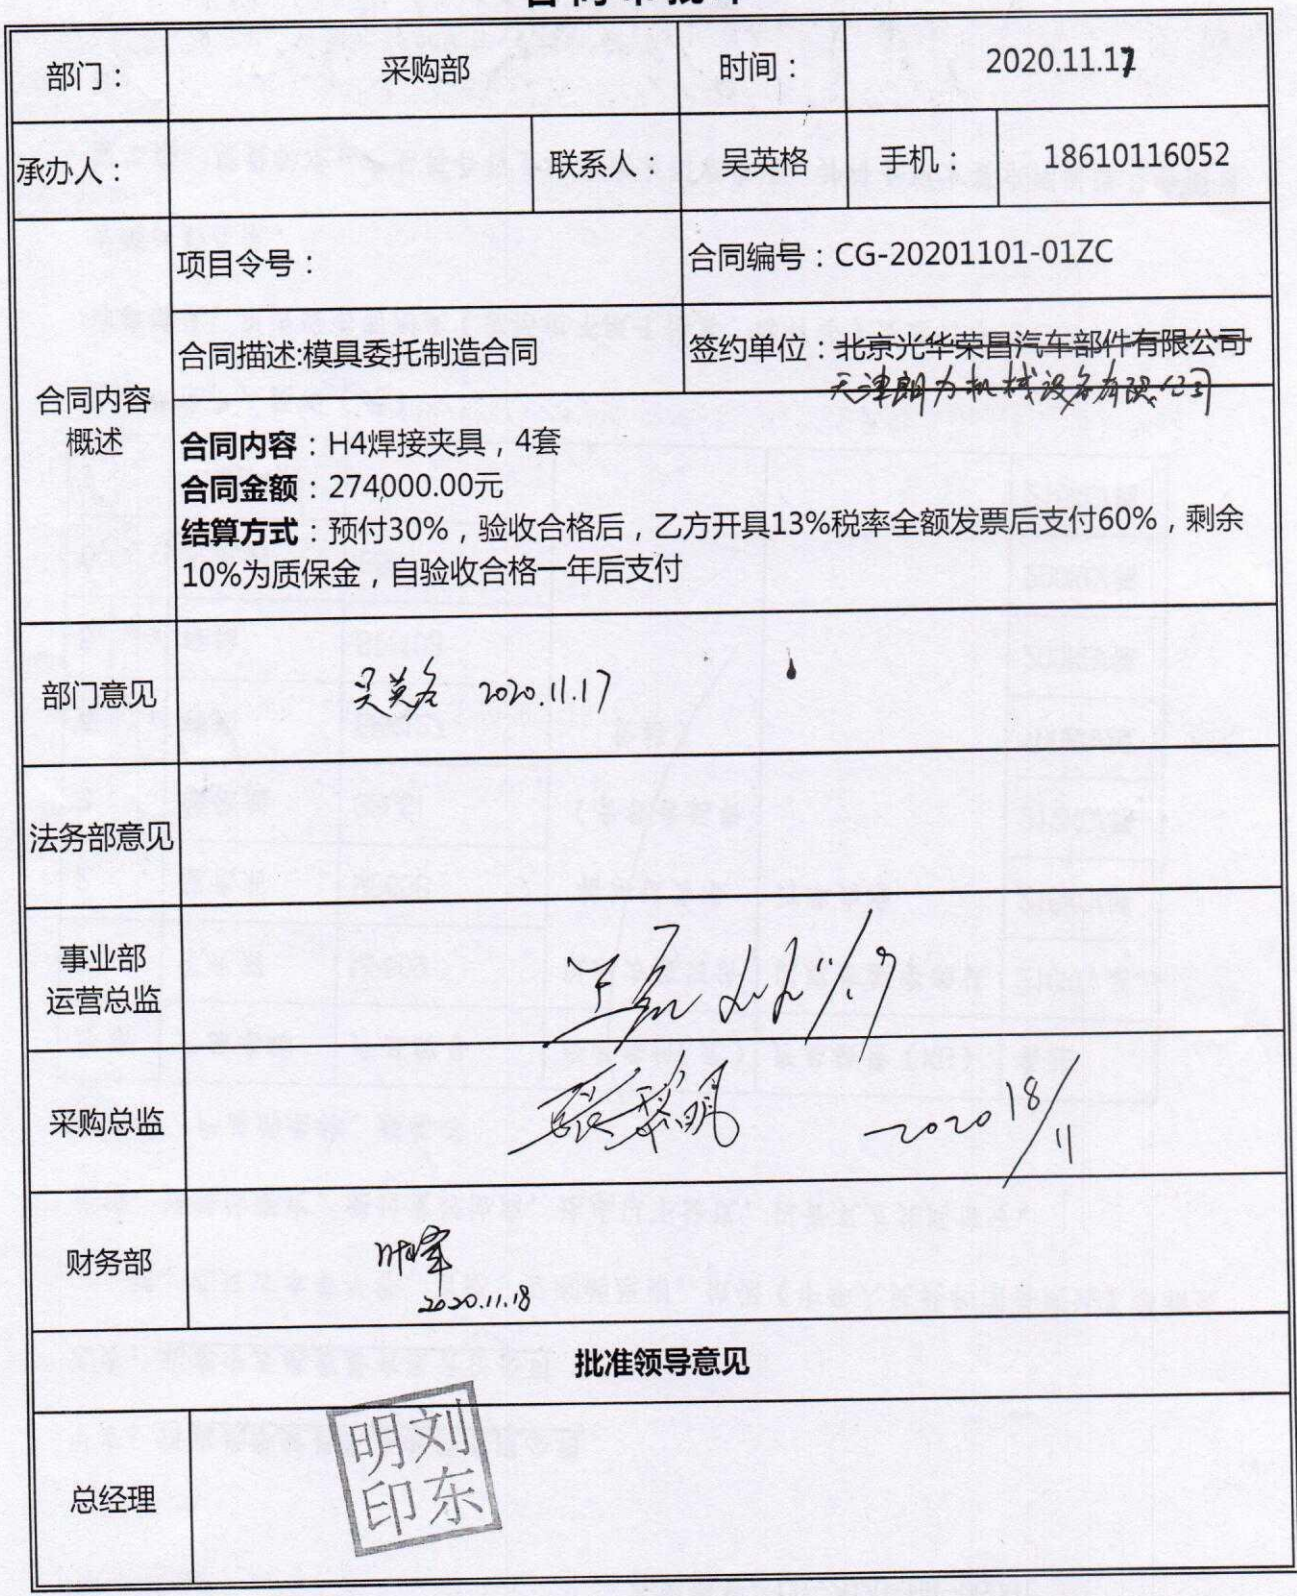 部门：
采购部
时间：
2020.11.17
承办人：
联系人：
吴英格
手机：
18610116052
合同内容
概述
项目令号：
合同编号：CG-20201101-01ZC
合同描述:模具委托制造合同
签约单位：北京光华荣昌汽车部件有限公司
天津朗力机械设备有限公司
合同内容：H4焊接夹具，4套
合同金额：274000.00元
结算方式：预付30%，验收合格后，乙方开具13%税率全额发票后支付60%，剩余
10%为质保金，自验收合格一年后支付
部门意见
吴英格 2020.11.17
法务部意见
事业部
运营总监
采购总监
张黎明 2020 18/11
财务部
2020.11.18
批准领导意见
总经理
刘东
明印